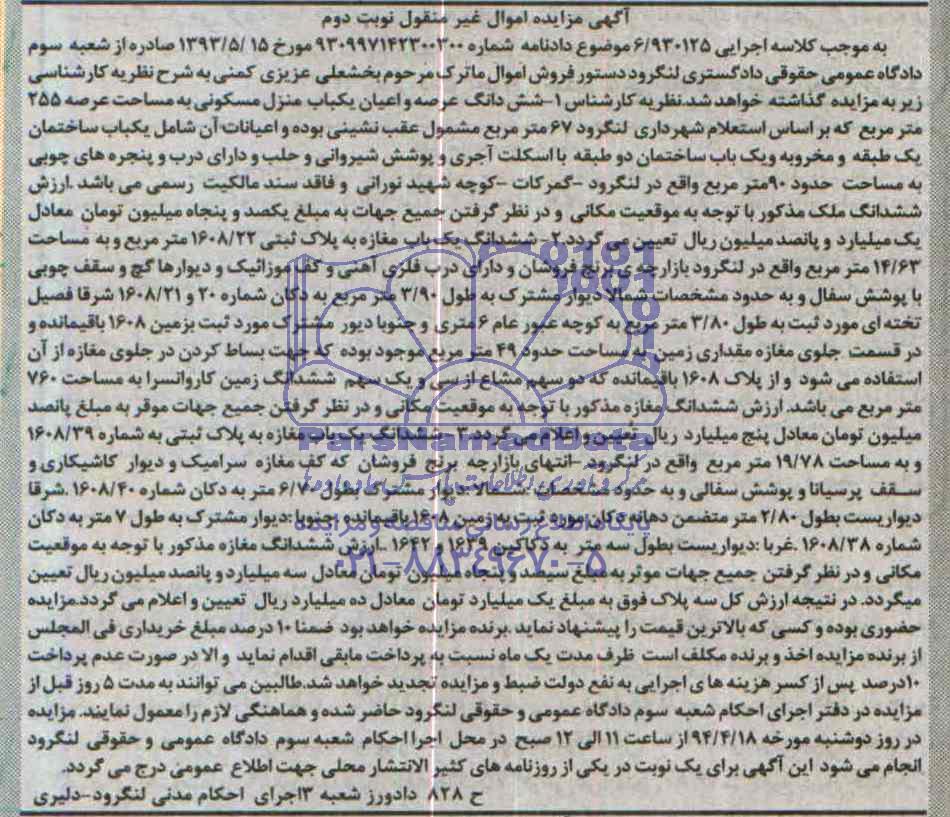 آگهی مزایده اموال غیر منقول نوبت دوم
به موجب کلاسه اجرایی ۶/۹۳۰۱۲۵ موضوع دادنامه شماره ۹۳۰۹۹۷۱۴۲۳۰۰۳۰۰ مورخ ۱۳۹۳/۵/۱۵ صادره از شعبه سوم
دادگاه عمومی حقوقی دادگستری لنگرود دستور فروش اموال ماترک مرحوم بخشعلی عزیزی کمنی به شرح نظریه کارشناسی
زیر به مزایده گذاشته خواهد شد.نظریه کارشناس ۱-شش دانگ عرصه و اعیان یکباب منزل مسکونی به مساحت عرصه ۲۵۵
متر مربع که بر اساس استعلام شهرداری لنگرود ۶۷ متر مربع مشمول عقب نشینی بوده و اعیانات آن شامل یکباب ساختمان
یک طبقه و مخروبه ویک باب ساختمان دو طبقه با اسکلت آجری و پوشش شیروانی و حلب و دارای درب و پنجره های چوبی
به مساحت حدود ۹۰متر مربع واقع در لنگرود -گمرکات -کوچه شهید نورانی و فاقد سند مالکیت رسمی می باشد .ارزش
ششدانگ ملک مذکور با توجه به موقعیت مکانی و در نظر گرفتن جمیع جهات به مبلغ یکصد و پنجاه میلیون تومان معادل
یک میلیارد و پانصد میلیون ریال تعیین می گردد.۲- ششدانگ یک باب مغازه به پلاک ثبتی ۱۶۰۸/۲۲ متر مربع و به مساحت
۱۴/۶۳ متر مربع واقع در لنگرود بازارچه ی برنج فروشان و دارای درب فلزی آهنی و کف موزائیک و دیوارها گچ و سقف چوبی
با پوشش سفال و به حدود مشخصات شمالا دیوار مشترک به طول ۳/۹۰ متر مربع به دکان شماره ۲۰ و ۱۶۰۸/۲۱ شرقا فصیل
تخته ای مورد ثبت به طول ۳/۸۰ متر مربع به کوچه عبور عام ۶ متری و جنوبا دیور مشترک مورد ثبت بزمین ۱۶۰۸ باقیمانده و
در قسمت جلوی مغازه مقداری زمین به مساحت حدود ۴۹ متر مربع موجود بوده که جهت بساط کردن در جلوی مغازه از آن
استفاده می شود و از پلاک ۱۶۰۸ باقیمانده که دو سهم مشاع از سی و یک سهم ششدانگ زمین کاروانسرا به مساحت ۷۶۰
متر مربع می باشد. ارزش ششدانگ مغازه مذکور با توجه به موقعیت مکانی و در نظر گرفتن جمیع جهات موقر به مبلغ پانصد
میلیون تومان معادل پنج میلیارد ریال تعیین و اعلام می گردد.۳- ششدانگ یک باب مغازه به پلاک ثبتی به شماره ۱۶۰۸/۳۹
و به مساحت ۱۹/۷۸ متر مربع واقع در لنگرود -انتهای بازارچه برنج فروشان که کف مغازه سرامیک و دیوار کاشیکاری و
سقف پرسیانا و پوشش سفالی و به حدود مشخصات :شمالا دیوار مشترک بطول ۶/۷۰ متر به دکان شماره ۱۶۰۸/۴۰ .شرقا
دیواریست بطول ۲/۸۰ متر متضمن دهانه دکان مورد ثبت به زمین ۱۶۰۸ باقیمانده .جنوبا :دیوار مشترک به طول ۷ متر به دکان
شماره ۱۶۰۸/۳۸ .غربا :دیواریست بطول سه متر به دکاکین ۱۶۳۹ و ۱۶۴۲ .ارزش ششدانگ مغازه مذکور با توجه به موقعیت
مکانی و در نظر گرفتن جمیع جهات موثر به مبلغ سیصد و پنجاه میلیون تومان معادل سه میلیارد و پانصد میلیون ریال تعیین
میگردد. در نتیجه ارزش کل سه پلاک فوق به مبلغ یک میلیارد تومان معادل ده میلیارد ریال تعیین و اعلام می گردد.مزایده
حضوری بوده و کسی که بالاترین قیمت را پیشنهاد نماید .برنده مزایده خواهد بود ضمنا ۱۰ درصد مبلغ خریداری فی المجلس
از برنده مزایده اخذ و برنده مکلف است ظرف مدت یک ماه نسبت به پرداخت مابقی اقدام نماید و الا در صورت عدم پرداخت
۱۰درصد پس از کسر هزینه های اجرایی به نفع دولت ضبط و مزایده تجدید خواهد شد.طالبین می توانند به مدت ۵ روز قبل از
مزایده در دفتر اجرای احکام شعبه سوم دادگاه عمومی و حقوقی لنگرود حاضر شده و هماهنگی لازم را معمول نمایند. مزایده
در روز دوشنبه مورخه ۹۴/۴/۱۸ از ساعت ۱۱ الی ۱۲ صبح در محل اجرا احکام شعبه سوم دادگاه عمومی و حقوقی لنگرود
انجام می شود این آگهی برای یک نوبت در یکی از روزنامه های کثیر الانتشار محلی جهت اطلاع عمومی درج می گردد.
ح ۸۲۸ دادورز شعبه ۳اجرای احکام مدنی لنگرود-دلیری
ParsNamadData
پایگاه اطلاع رسانی مناقصه و مزایده
۰۲۱-۸۸۳۴۹۶۷۰-۵